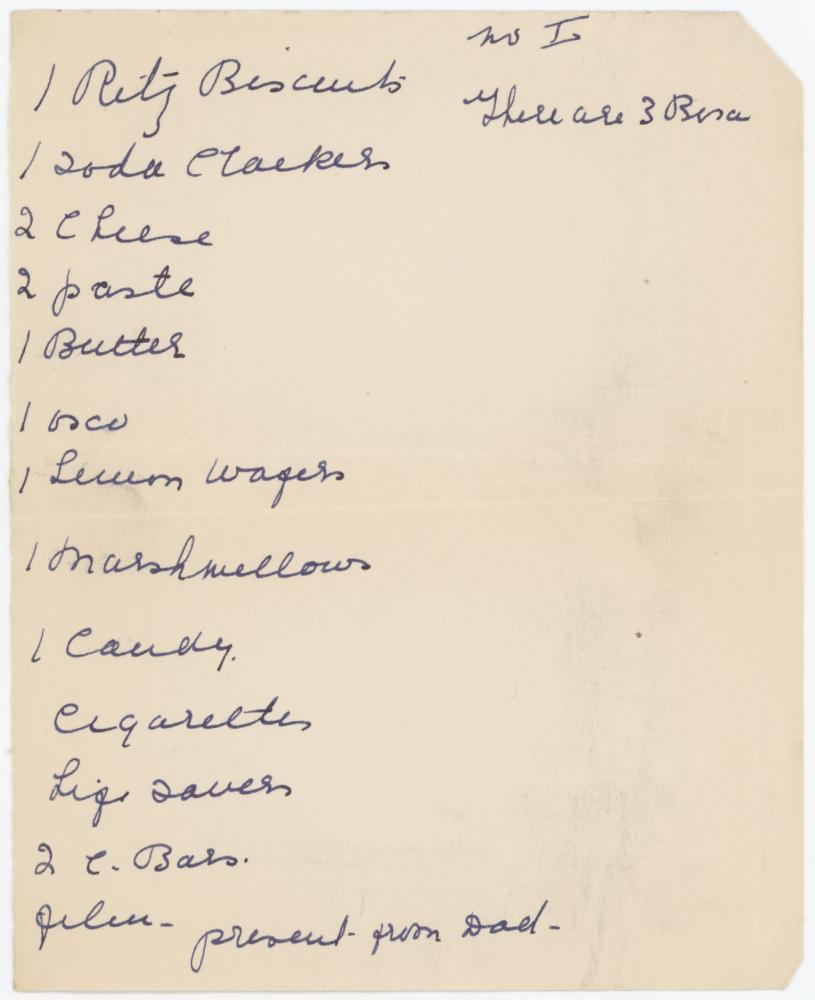 no I
There are 3 Boxa
1 Ritz Biscuits
1 soda Crackers
2 Cheese
2 paste
1 Butter
1 osco
1 Lemon Wafers
1 Marshmellows
1 Candy.
Cigarettes
Life savers
2 C. Bars.
film - present from Dad -